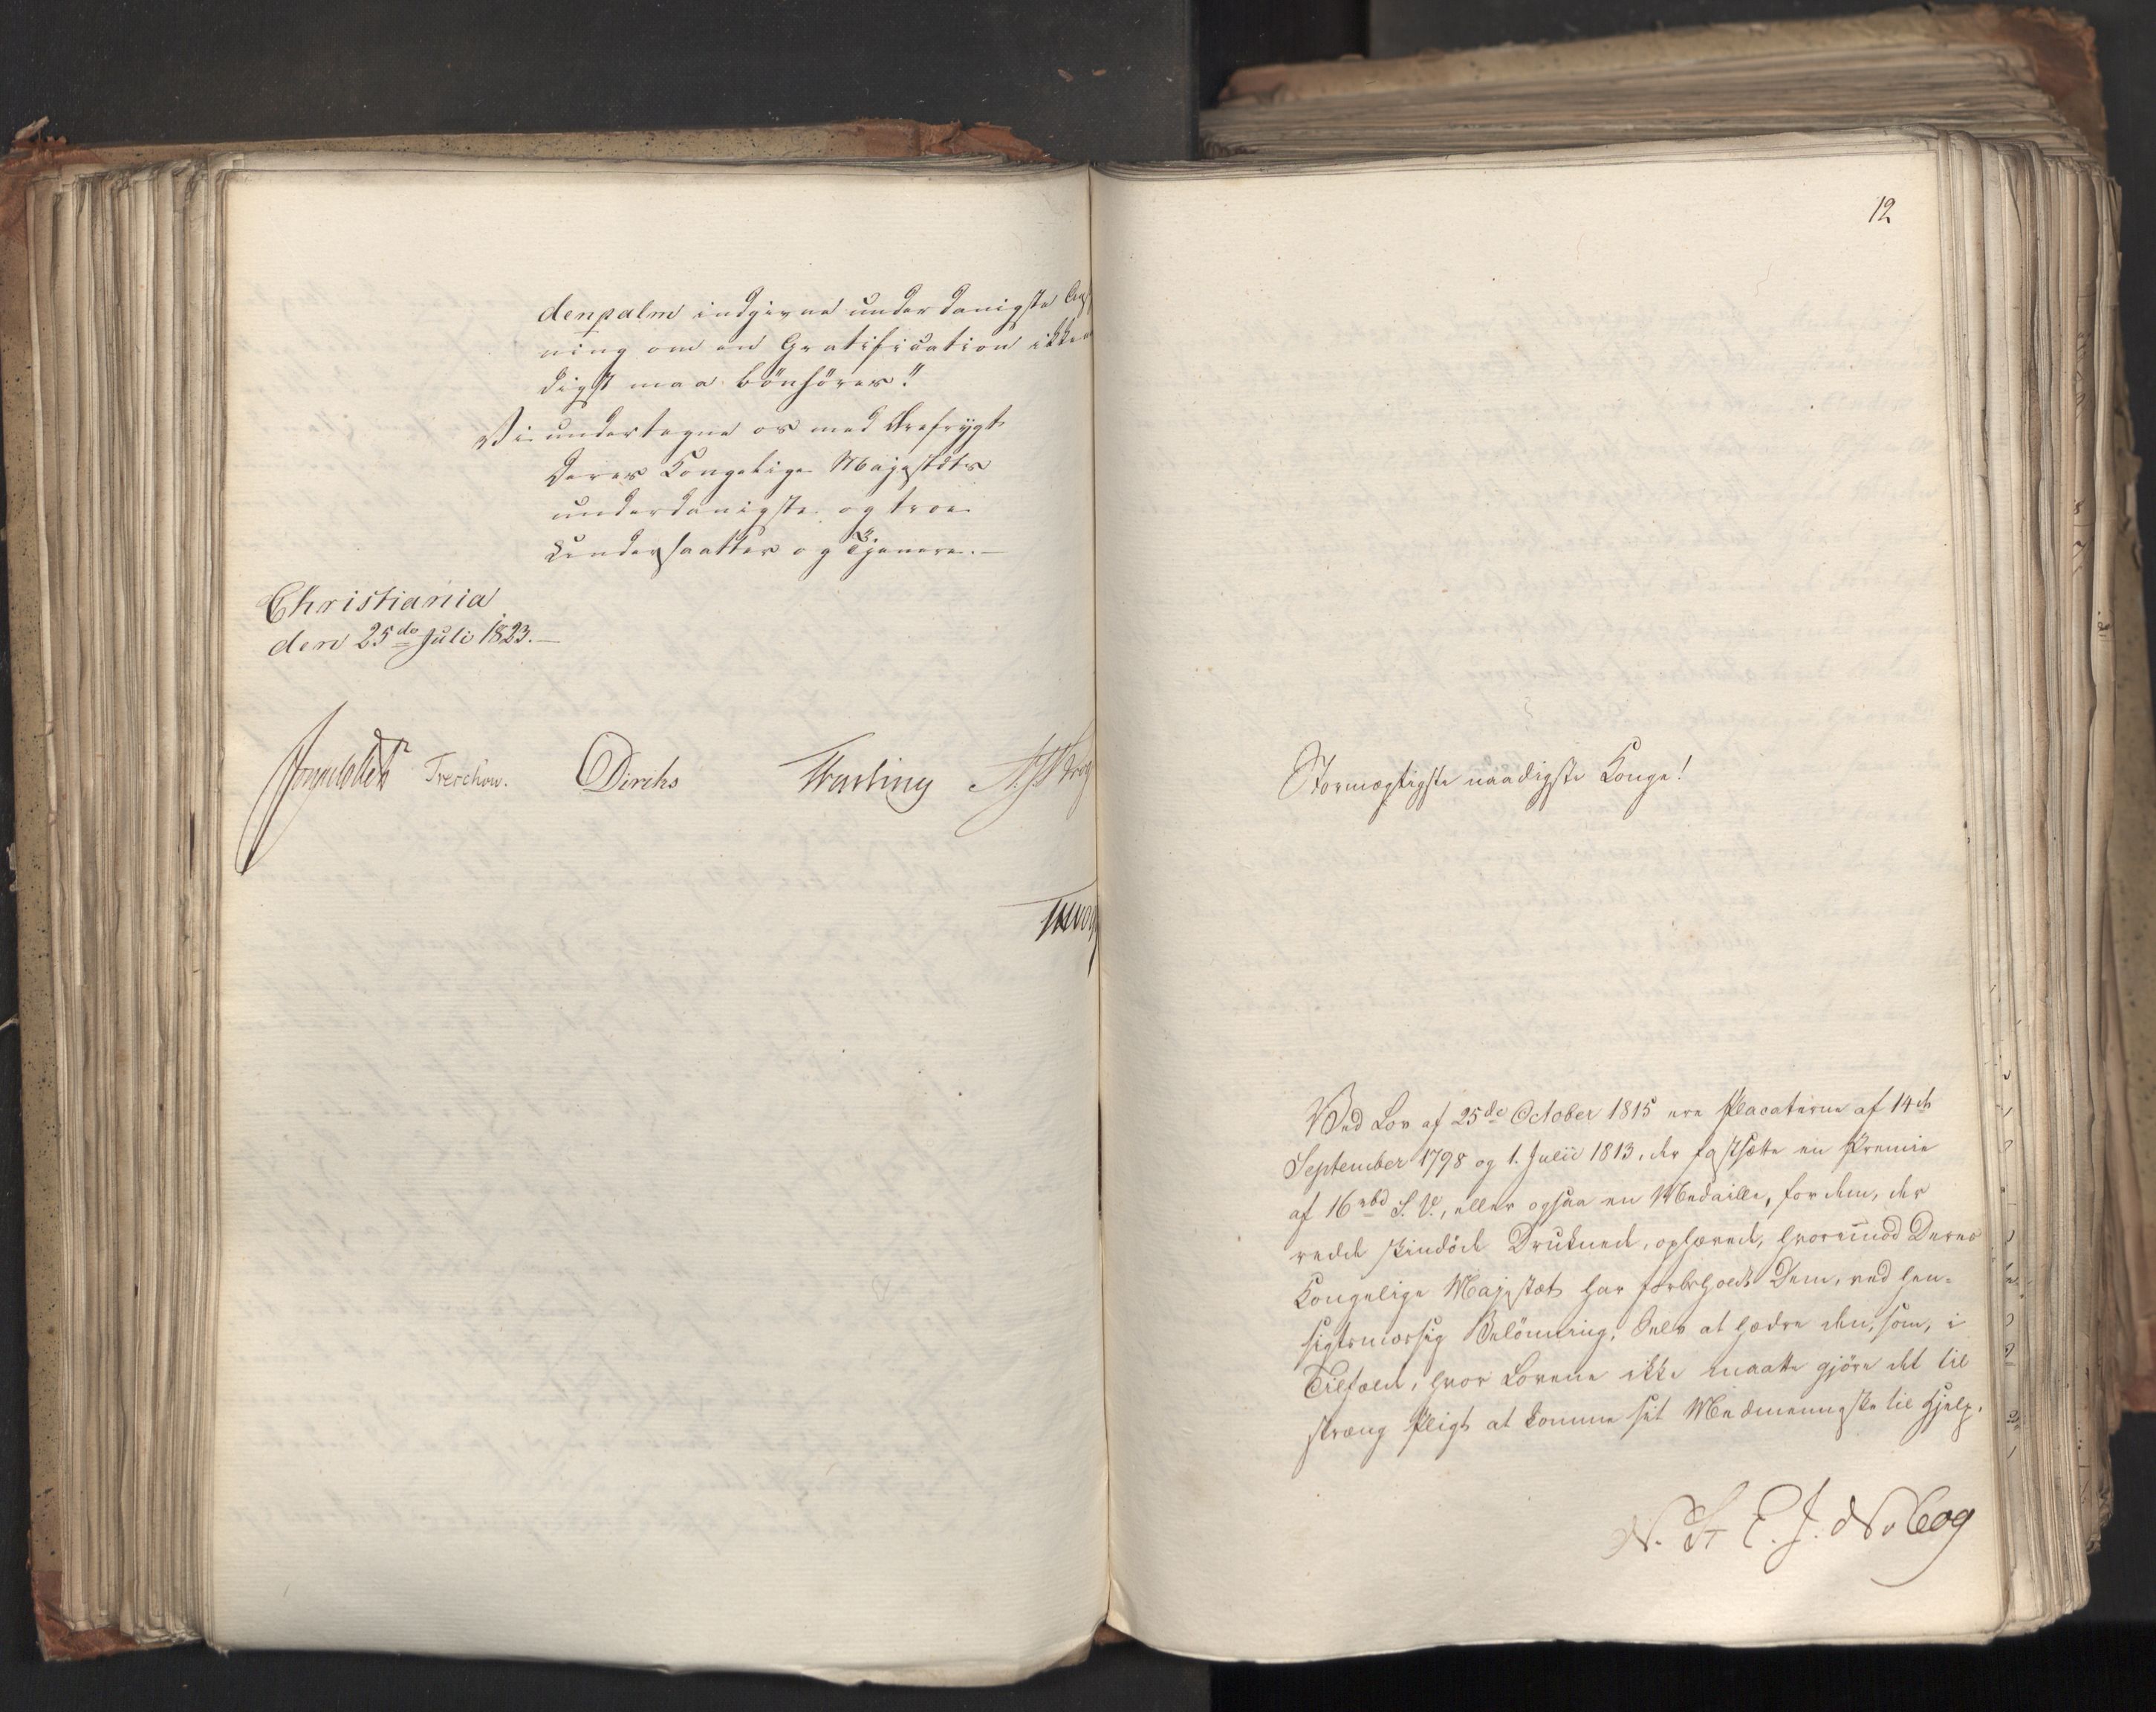 denpalm indgivne underdanigste
ning om en Gratification ikke
digst maa bönhöres."
Vi undertegne os med Ærefrygt
Deres Kongelige Majestæts
underdanigste og troe
Undersaatter og Tjenere.—
Christiania
den 25de Juli 1823.—
Treschow. Diriks
12
Stormægtigste naadigste Konge!
Ved Lov af 25de October 1815 ere Placaterne af 14de
September 1798 og 1. Julii 1813, der fastsætte en Premie
af 16 rbd S. V., eller ogsaa en Medaille, for dem, der
redde skindöde Druknede, ophævede, hvorimod Deres
Kongelige Majestæt har forbeholdt Dem, ved hen-
sigtsmæssig Belönning, Selv at hædre den, som, i
Tilfælde, hvor Lovene ikke maatte gjöre det til
stræng Pligt at komme sit Medmenneske til Hjelp,